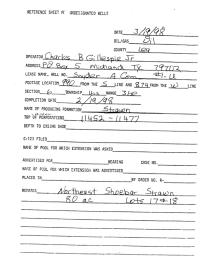 REFERENCE SHEET FOR UNDESIGNATED WELLS
DATE 3/19/98
OIL/GAS Oil
COUNTY Lea
OPERATOR Charles B Gillespie Jr
ADDRESS PO Box 8 Midland, TX 79702
LEASE NAME, WELL NO. Snyder A Com
FOOTAGE LOCATION 990 FROM THE S LINE AND 879 FROM THE W LINE
SECTION 6 TOWNSHIP 16s RANGE 36e
COMPLETION DATE 2/19/98
NAME OF PRODUCING FORMATION Strawn
TOP OF PERFORATIONS 11452 - 11477
DEPTH TO CASING SHOE
C-123 FILED
NAME OF POOL FOR WHICH EXTENSION WAS ASKED
ADVERTISED FOR HEARING CASE NO.
NAME OF POOL FOR WHICH EXTENSION WAS ADVERTISED
PLACED IN BY ORDER NO. R-
REMARKS Northeast Shoebar Strawn
80 ac Lots 17 & 18